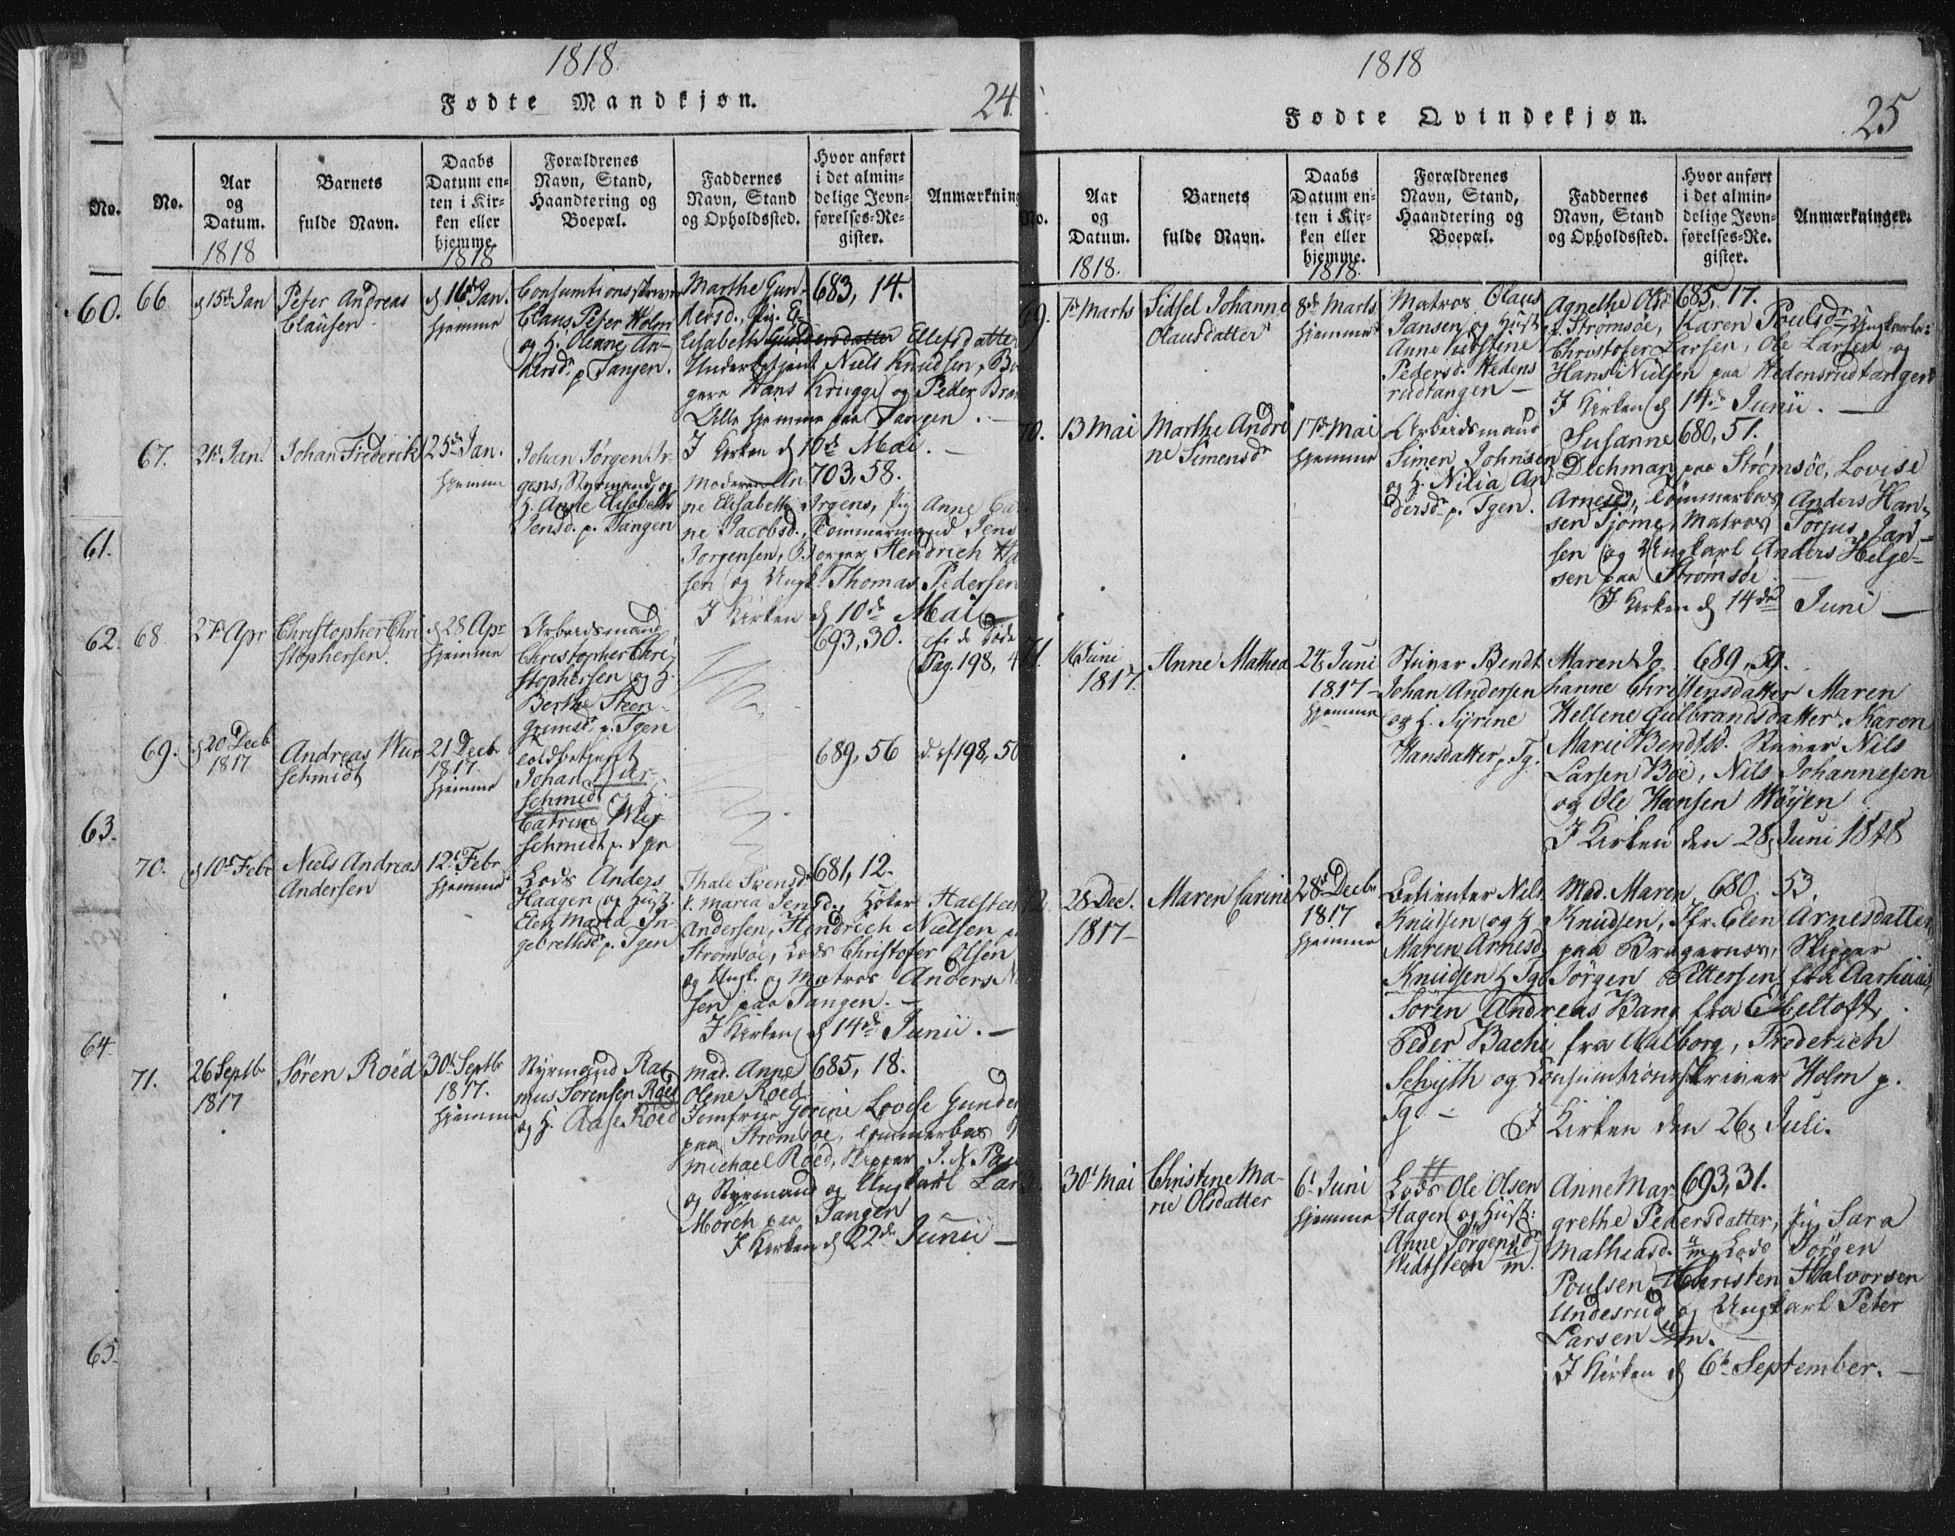 1818
Fødte Mandkjøn.
24.
No.
No.
Aar og Datum.
1818
Barnets fulde Navn.
Daabs Datum enten i Kirken eller hjemme.
1818
Forældrenes Navn, Stand, Haandtering og Boepæl.
Faddernes Navn, Stand og Opholdssted.
Hvor anført i det almindelige Jevnførelses-Register.
Anmærkning
60.
61.
62.
63.
64.
65.
66
d 15de Jan
Peter Andreas
Clausen
d 16de Jan.
hjemme
Consumtionsskriver
Claus Peter Holm
og H. Olenne An-
dersdr p Tangen.
Marthe Gun-
dersd., Pig. E-
lisabeth Gundersdatter Ellefsdatter
Underbetjent Niels Knudsen, Bor
gere Hans Krigge og Peder
Alle hjemme paa Tangen.
I Kirken d 10de Mai.
683, 14.
67.
21de Jan.
Johan Frederik
25de Jan.
hjemme
Johan Jørgen Jr-
gens, Styrmand, og
H. Anne Elisabeth
Jensd. p. Tangen
Moderen An-
ne Elisabeth Irgens, Pig Anne Ca
ne Jacobsd., Tømmermand Jens
Jorgensen, Borger Hendrich
sen og Ungk. Thomas Pedersen
I Kirken d 10de Mai
703, 58.
68.
27de Apr
Christopher Chri
stophersen.
d 28 Apr
hjemme
Arbeidsmand
Christopher Chri-
stophersen og H.
Berthe Steen-
grimsdr p. Tgen
693, 30.
cf. de Døde
Pag. 198, 4
69.
d 20 Decb
1817
Andreas Wur
schmidt
21 Decb
1817.
hjemme
Toldbetjent
Johan Wur-
schmidt og H.
Catrine Wur
schmidt p. Tgen
689, 56
d. cf 198, 50
70.
d 10de Febr
Niels Andreas
Andersen
12te Febr
hjemme
Lods Anders
Haagen og Hust.
Elen Maria In-
gebrethsdr p. Tgen
Thale Svensdr
k. Maria Jensd., Høker Halsteen
Andersen, Hendrich Nielsen p
Strømsøe, Lods Christofer Olsen
og Ungk. og Matros Anders N
sen paa Tangen.
I Kirken d 14de Junii.
681, 12.
71.
26 Septbr
1817
Søren Roëd
30te Septbr
1817.
hjemme
Styrmand Ras
mus Sørensen Roëd
og H. Aase Roëd
Mad. Anne
Olene Roëd
Jomfrue Gorine Lovise Gunder
paa Strømsøe, Tømmerbas
Michael Roëd, Skipper J. N.
og Styrmand og Ungkarl Lar
Morch paa Tangen
I Kirken d 22de Junii
685, 18.
1818
Fødte Qvindekjøn.
25
No.
Aar og Datum.
1818.
Barnets fulde Navn.
Daabs Datum enten i Kirken eller hjemme.
1818.
Forældrenes Navn, Stand, Haandtering og Boepæl.
Faddernes Navn, Stand og Opholdssted.
Hvor anført i det almindelige Jevnførelses-Re. gister.
Anmærkninger.
69.
7de Marts
Sidsel Johanne
Olausdatter
8de Marts
hjemme
Matros Olaus
Jansen og Hust.
Anne Kirstine
Pedersd. Hedens
rudtangen
Agnethe Olsd.
p. Strømsøe, Karen Poulsdr, Ungkarle:
Christofer Larsen, Ole Larsen og
Hans Nielsen paa Hedensrudtangen
I Kirken d 14de Junii.
685, 17.
70.
13 Mai
Marthe Andri
ne Simensdr
17de Mai
hjemme
Arbeidsmand
Simen Johnsen
og H. Nilia An
dersdr p. Tgen.
Susanne
Dechman paa Strømsøe, Lovise
Arnesd., Tømmerbas Anders Han-
sen Tjome, Matros Torjus Jan-
sen og Ungkarl Anders Helge-
sen paa Strømsøe
I Kirken d 14de Juni
680, 51.
71.
16 Juni
1817.
Anne Mathea
24 Juni
1817
hjemme
Stuver Bendt
Johan Andersen
og H. Syrine
Hansdatter, p. Tg.
Maren Jo-
hanne Christensdatter Maren
Hellene Gulbrandsdatter, Karen
Marie Bendtsd. Stuver Nils
Larsen Böe, Nils Johannesen
og Ole Hansen Wøyen
I Kirken den 28 Juni 1818
689, 59.
72.
28 Dec.
1817
Maren Carine
28de Decbr
1817
hjemme
Betienter Niels
Knudsen og H.
Maren Arnesd.
Knudsen p. Tg.
Mad. Maren
Knudsen, Jfr. Elen Arnesdatter,
paa Bragernes, Skipper
Jörgen Pettersen, fra Aarhuus,
Søren Andreas Bang fra Ebeltoft,
Peder Bache fra Aalborg, Frederich
Schyth og Consumtionsskriver Holm p.
Tg
I Kirken den 26 Juli.
680. 53.
73.
30te Mai
Christine Ma-
rie Olsdatter
6te Juni
hjemme
Lods Ole Olsen
Hagen og Hust:
Anne Jörgensdr
Anne Mar-
grethe Pedersdatter, Pig. Sara
Mathiasd. Lods Jörgen
Poulsen, Christen Halvorsen
Undesrud og Ungkarl Peter
Larsen
I Kirken d 6te September.
693, 31.